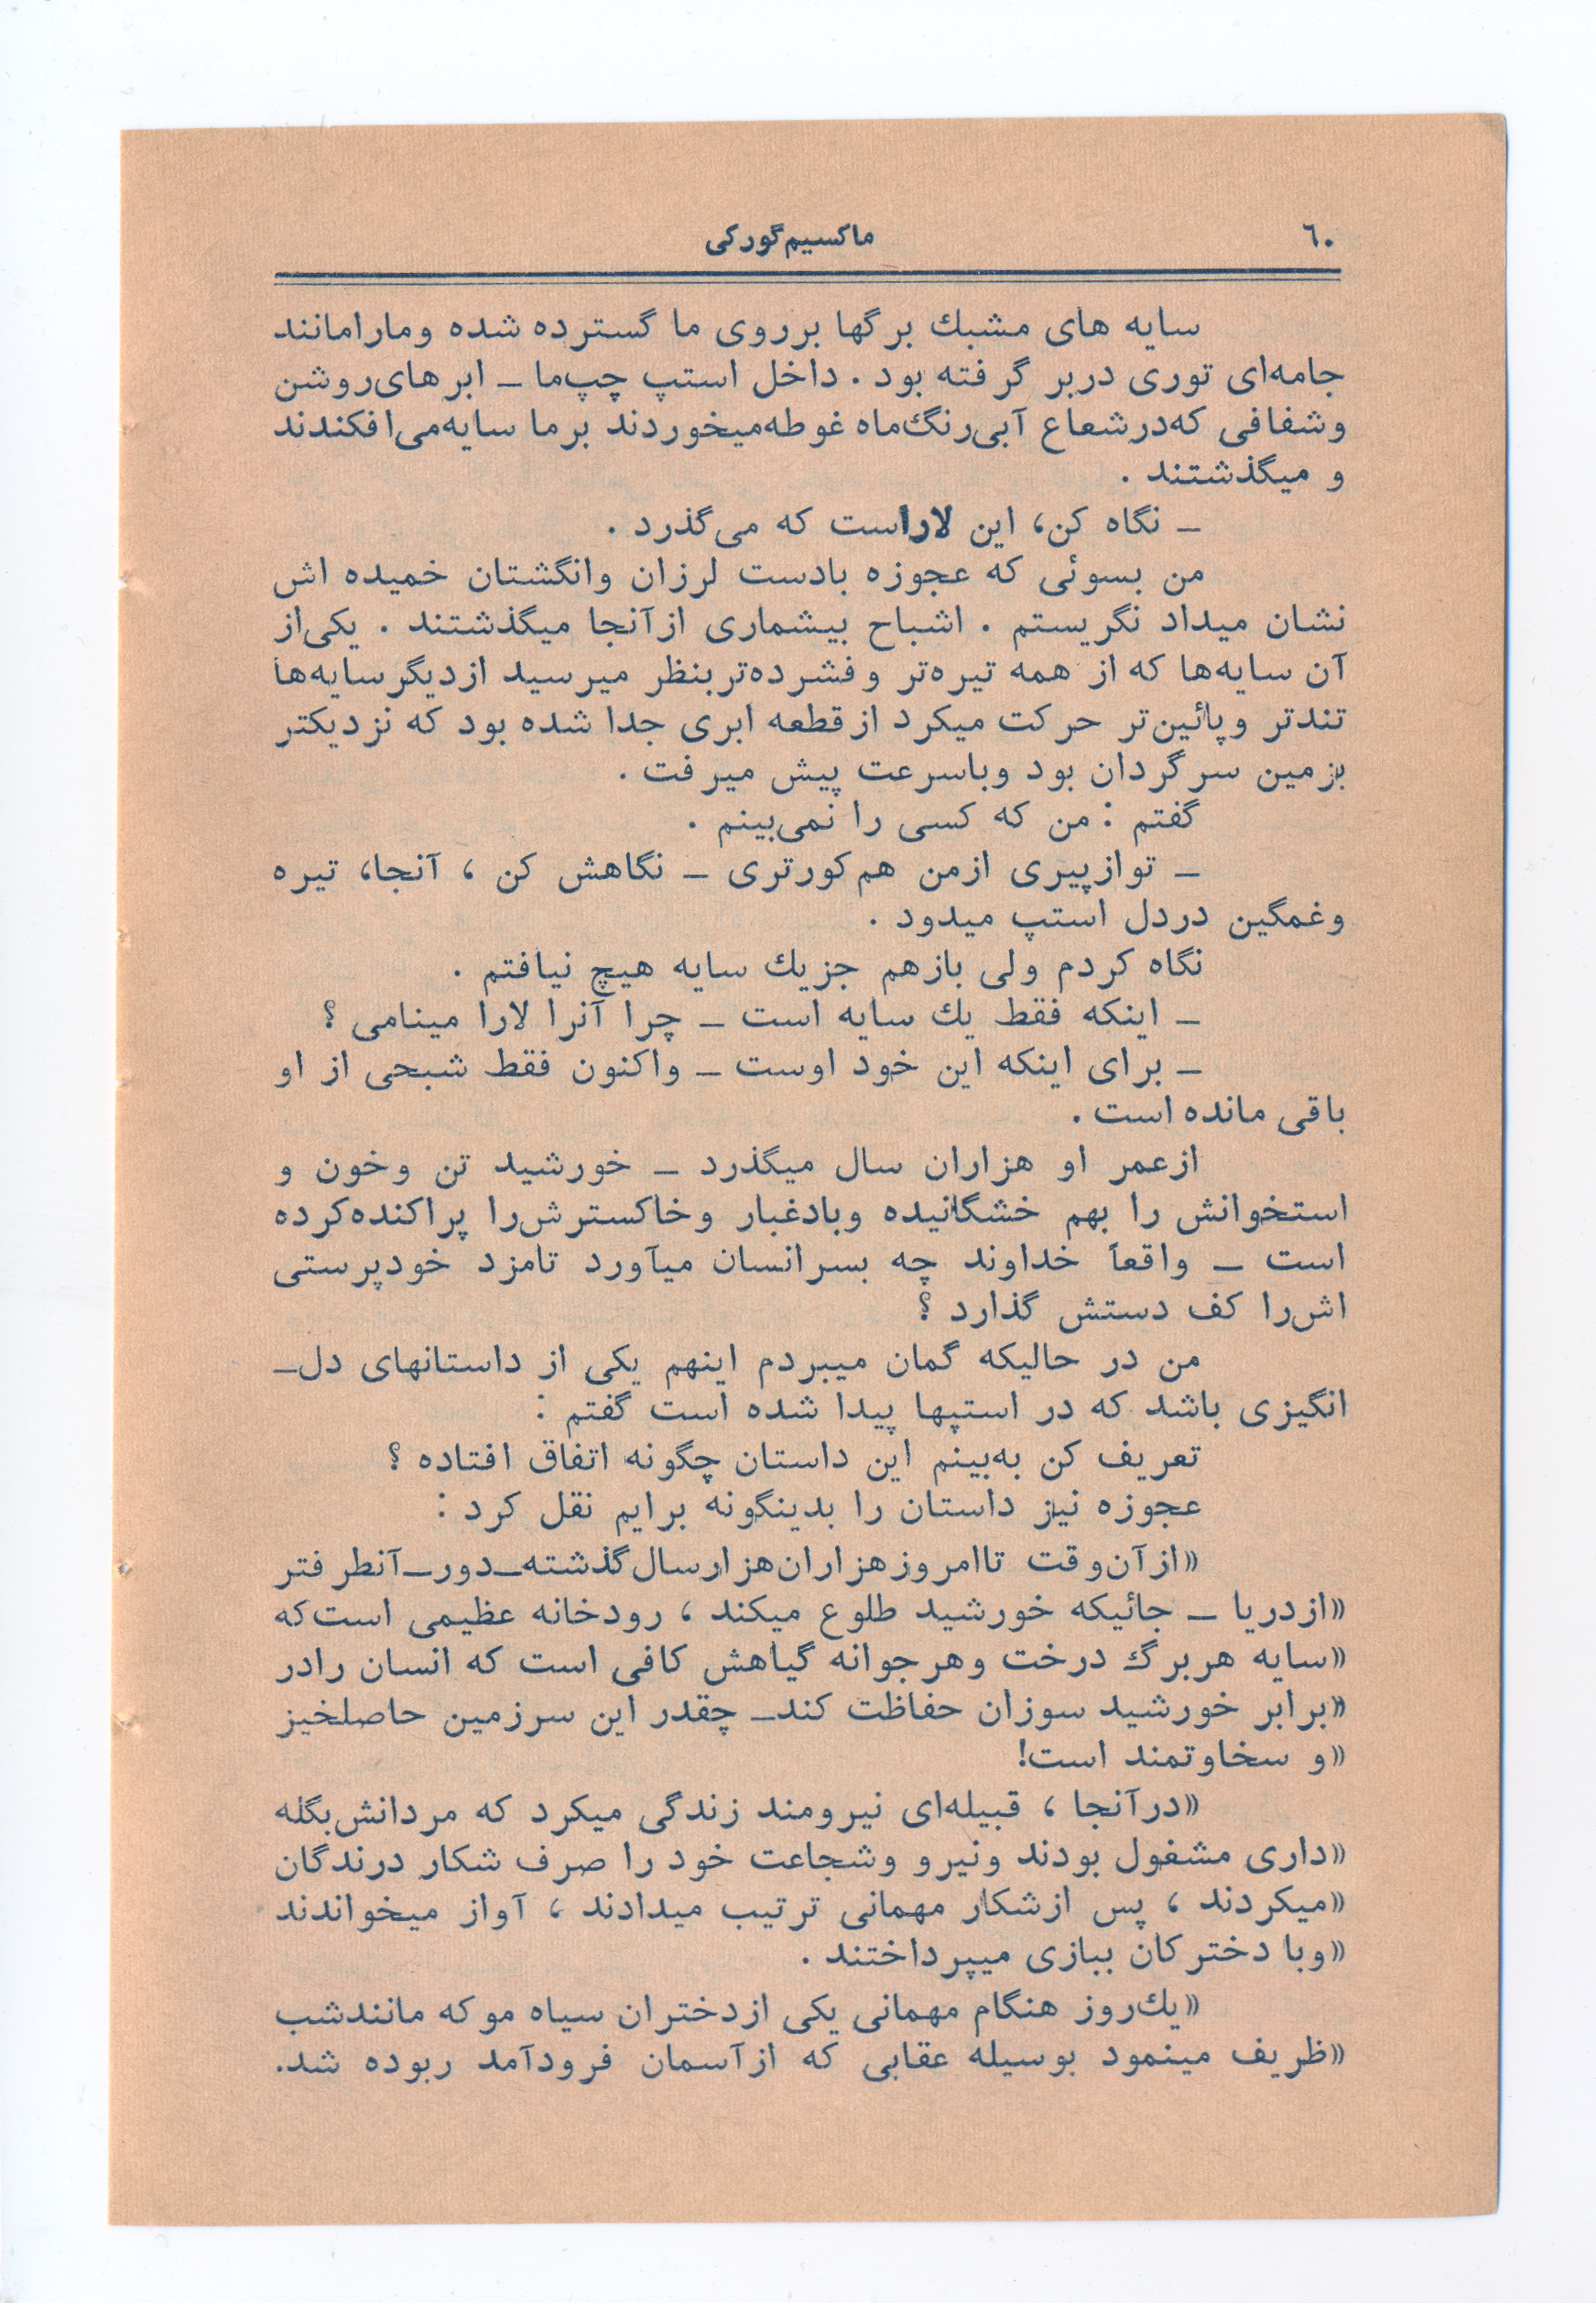 ۶۰
ماکسیم گورکی
سایه های مشبك برگها برروی ما گسترده شده ومارامانند
جامه‌ای توری دربر گرفته بود . داخل استپ چپ‌ما ــ ابرهای‌روشن
وشفافی که‌درشعاع آبی‌رنگ‌ماه غوطه‌میخوردند برما سایه‌می‌افکندند
و میگذشتند .
ــ نگاه کن، این لاراست که می‌گذرد .
من بسوئی که عجوزه بادست لرزان وانگشتان خمیده اش
نشان میداد نگریستم . اشباح بیشماری ازآنجا میگذشتند . یکی‌از
آن سایه‌ها که از همه تیره‌تر و فشرده‌تربنظر میرسید ازدیگرسایه‌ها
تندتر وپائین‌تر حرکت میکرد ازقطعه ابری جدا شده بود که نزدیکتر
بزمین سرگردان بود وباسرعت پیش میرفت .
گفتم : من که کسی را نمی‌بینم .
ــ توازپیری ازمن هم‌کورتری ــ نگاهش کن ، آنجا، تیره
وغمگین دردل استپ میدود .
نگاه کردم ولی بازهم جزیك سایه هیچ نیافتم .
ــ اینکه فقط یك سایه است ــ چرا آنرا لارا مینامی ؟
ــ برای اینکه این خود اوست ــ واکنون فقط شبحی از او
باقی مانده است .
ازعمر او هزاران سال میگذرد ــ خورشید تن وخون و
استخوانش را بهم خشگانیده وبادغبار وخاکسترش‌را پراکنده‌کرده
است ــ واقعاً خداوند چه بسرانسان میآورد تامزد خودپرستی
اش‌را کف دستش گذارد ؟
من در حالیکه گمان میبردم اینهم یکی از داستانهای دل‌ــ
انگیزی باشد که در استپها پیدا شده است گفتم :
تعریف کن به‌بینم این داستان چگونه اتفاق افتاده ؟
عجوزه نیز داستان را بدینگونه برایم نقل کرد :
«ازآن‌وقت تاامروزهزاران‌هزارسال‌گذشته‌ــ‌دور‌ــ‌آنطرفتر
«ازدریا ــ جائیکه خورشید طلوع میکند ، رودخانه عظیمی است‌که
«سایه هربرگ درخت وهرجوانه گیاهش کافی است که انسان رادر
«برابر خورشید سوزان حفاظت کند‌ــ چقدر این سرزمین حاصلخیز
«و سخاوتمند است!
«درآنجا ، قبیله‌ای نیرومند زندگی میکرد که مردانش‌بگله
«داری مشغول بودند ونیرو وشجاعت خود را صرف شکار درندگان
«میکردند ، پس ازشکار مهمانی ترتیب میدادند ، آواز میخواندند
«وبا دخترکان ببازی میپرداختند .
«یك‌روز هنگام مهمانی یکی ازدختران سیاه موکه مانندشب
«ظریف مینمود بوسیله عقابی که ازآسمان فرودآمد ربوده شد.